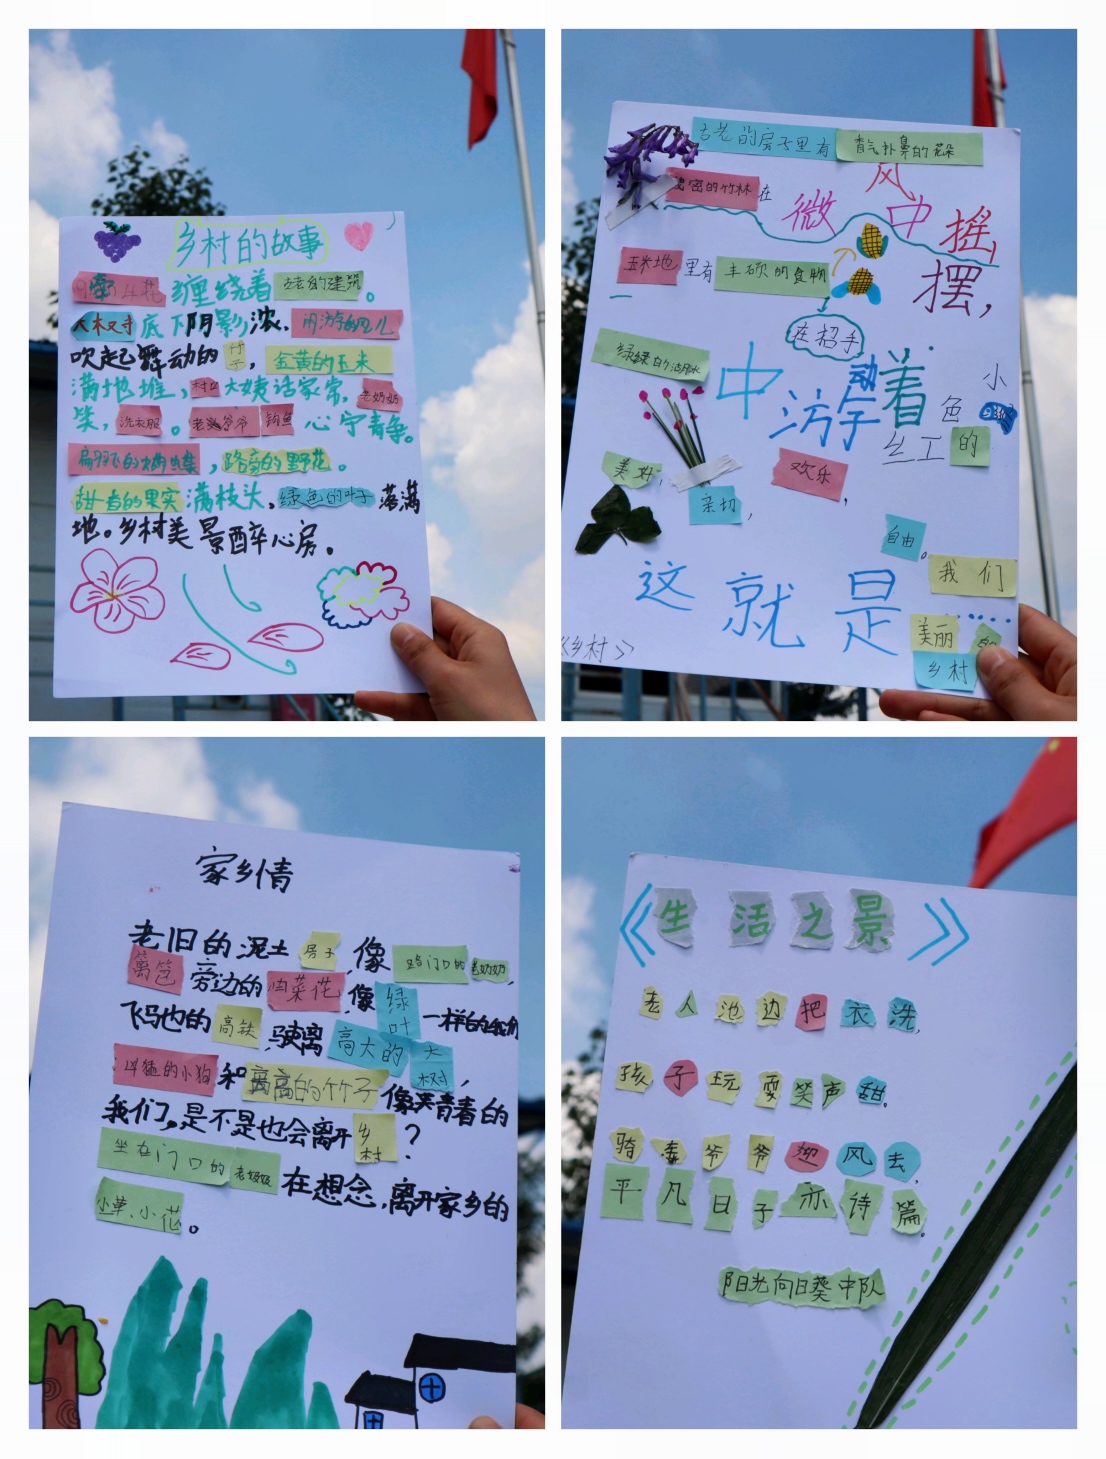 乡村的故事
缠绕着老的建筑。
大木又寸底下阴影浓，闲游的风儿
吹起舞动的竹子，金黄的玉米
满地堆，村口大姨话家常，老奶奶
笑，洗衣服。老爷爷钓鱼心宁静。
扇羽飞的，路旁的野花。
甜香的果实满枝头，绿色的叶子落满
地。乡村美景醉心房。
古老的房子里有香气扑鼻的花朵
密的竹林在微风中摇摆，
玉米地里有丰硕的食物
在招手
绿绿的湖水中游动着
小
色
的
美好，亲切，欢乐，自由。
这就是……
我们
美丽的
乡村
《乡村》
家乡情
老旧的泥土房子，像路门口的老奶奶，
篱笆旁边的油菜花，像绿叶一样的
飞驰的高铁，驶离高大的大树，
凶猛的小狗和高高的竹子像笑青春的
我们，是不是也会离开乡村？
坐在门口的老奶奶在想念，离开家乡的
小草、小花。
《生活之景》
老人池边把衣洗，
孩子玩耍笑声甜。
骑车爷爷迎风去，
平凡日子亦诗篇。
阳光向日葵中队